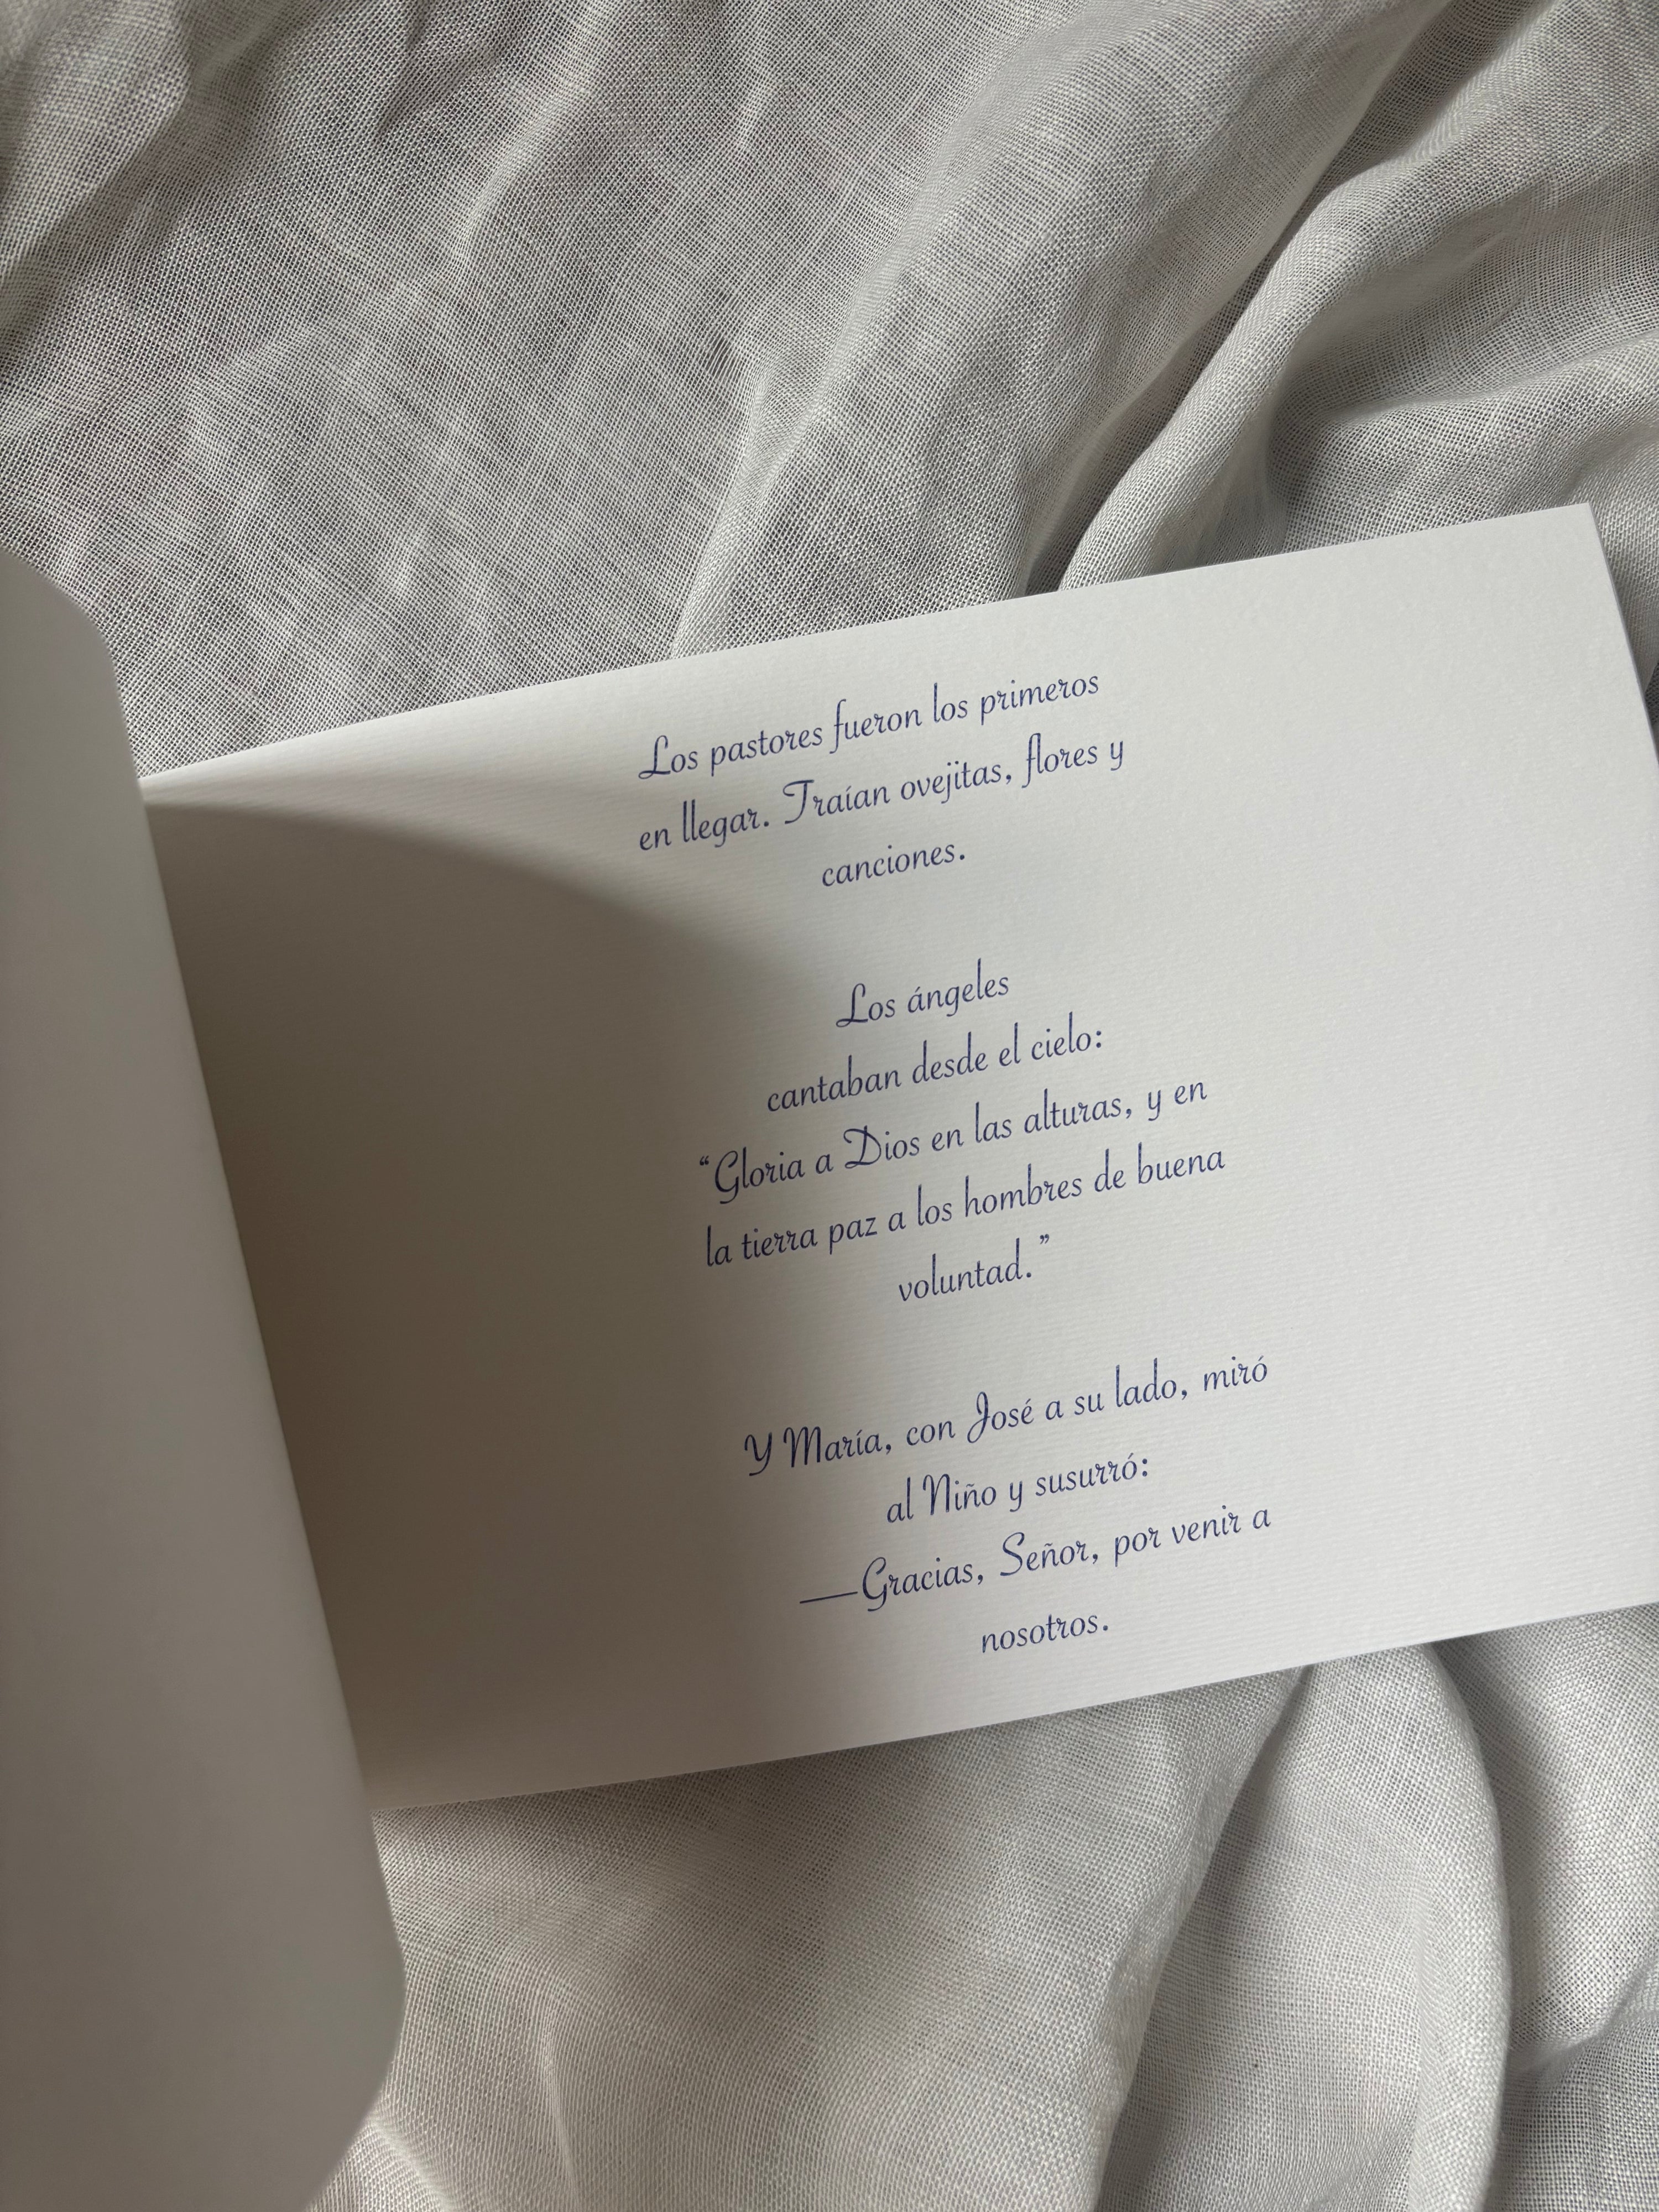 Los pastores fueron los primeros
en llegar. Traían ovejitas, flores y
canciones.
Los ángeles
cantaban desde el cielo:
“Gloria a Dios en las alturas, y en
la tierra paz a los hombres de buena
voluntad.”
Y María, con José a su lado, miró
al Niño y susurró:
—Gracias, Señor, por venir a
nosotros.